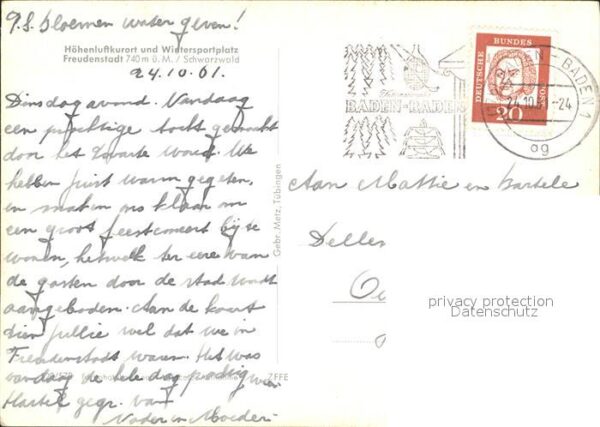 P.S. bloemen water geven!
Höhenluftkurort und Wintersportplatz
Freudenstadt 740 m ü. M. / Schwarzwald
24.10.61.
Dinsdagavond. Vandaag
een prachtige tocht gemaakt
door het Zwarte Woud. We
hebben juist warm gegeten,
en maken ons klaar om
een groot feestconcert bij te
wonen, hetwelk ter eere van
de gasten door de stad wordt
aangeboden. Aan de kaart
zien jullie wel dat we in
Freudenstadt waren. Het was
vandaag de hele dag prachtig weer
Hartel. gegr. van
Vader en Moeder
Gebr. Metz, Tübingen
BADEN-BADEN
DEUTSCHE BUNDESPOST
20
BADEN-BADEN 1
24.10.61-24
ag
Aan Mattie en
Delle
privacy protection
Datenschutz